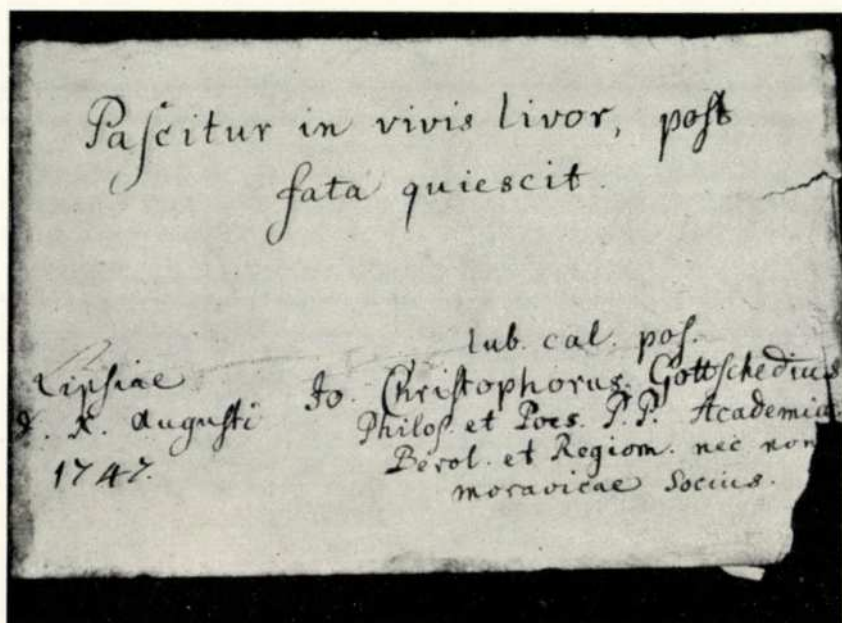 Paſcitur in vivis livor, poſt
fata quiescit.
lub. cal. poſ.
Lipſiae
d. X. Auguſti
1747.
Jo. Chriſtophorus Gottſchedius
Philoſ. et Poes. P.P. Academiar.
Berol. et Regiom. nec non
moravicae Socius.